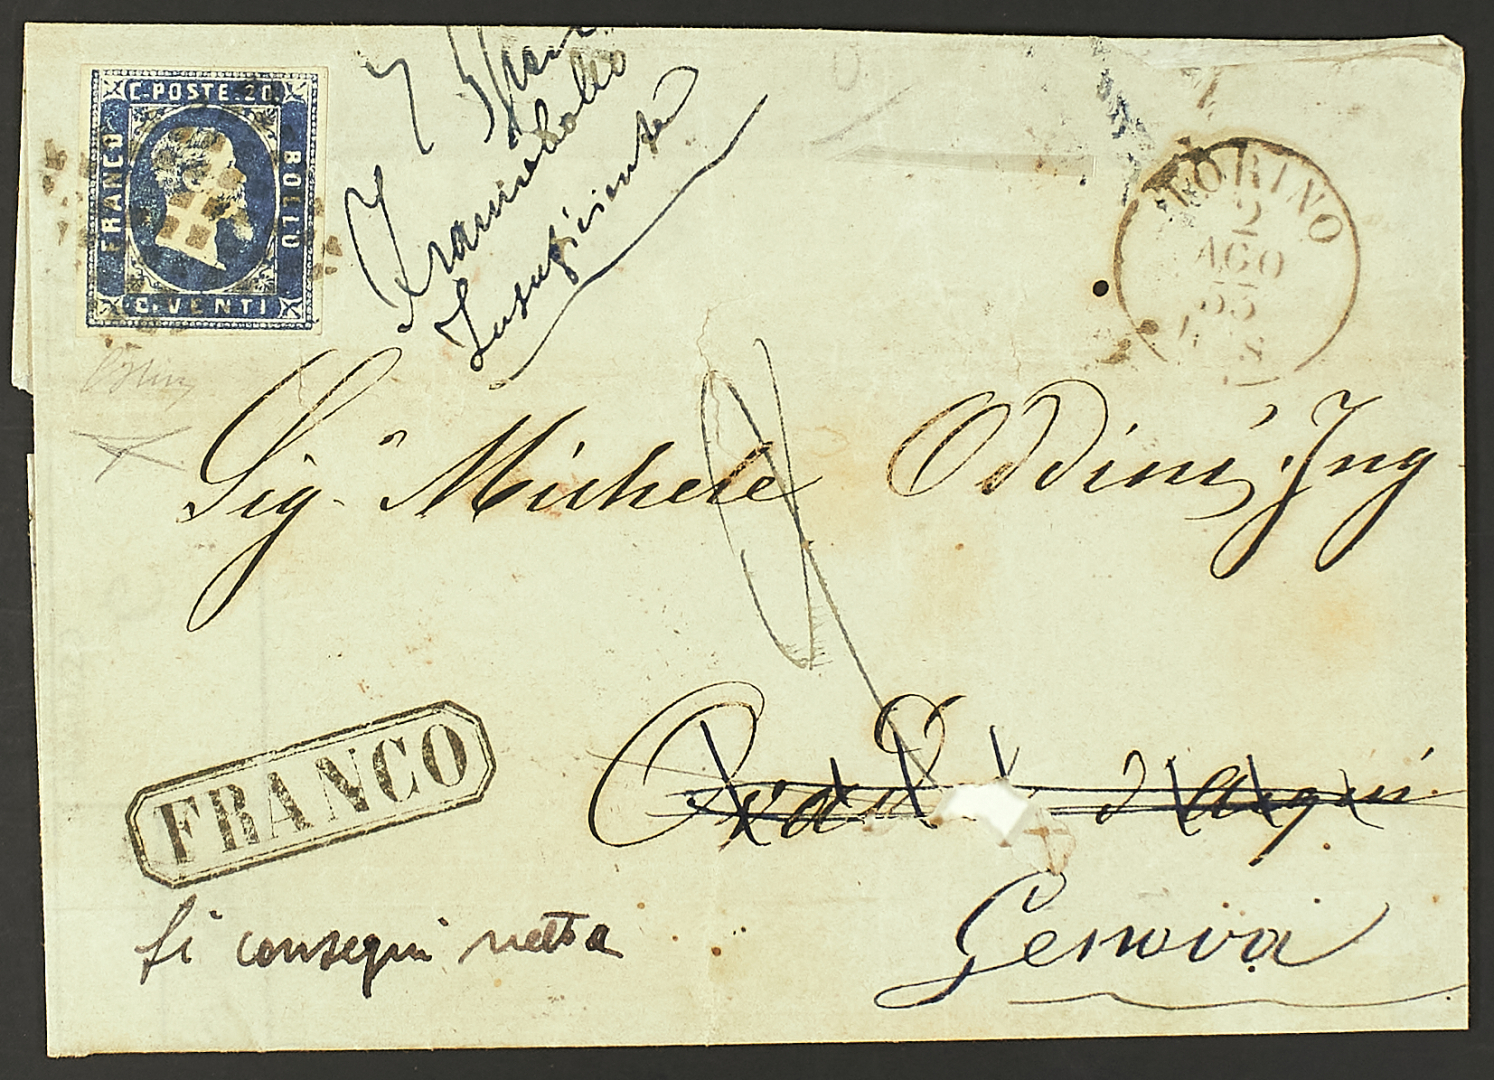 C. POSTE. 20
FRANCO
BOLLO
C. VENTI
Francobollo
Insufficiente
TORINO
2
AGO
53
Sig. Michele Oddini Ing
d'Acqui
FRANCO
Genova
Si consegni netta